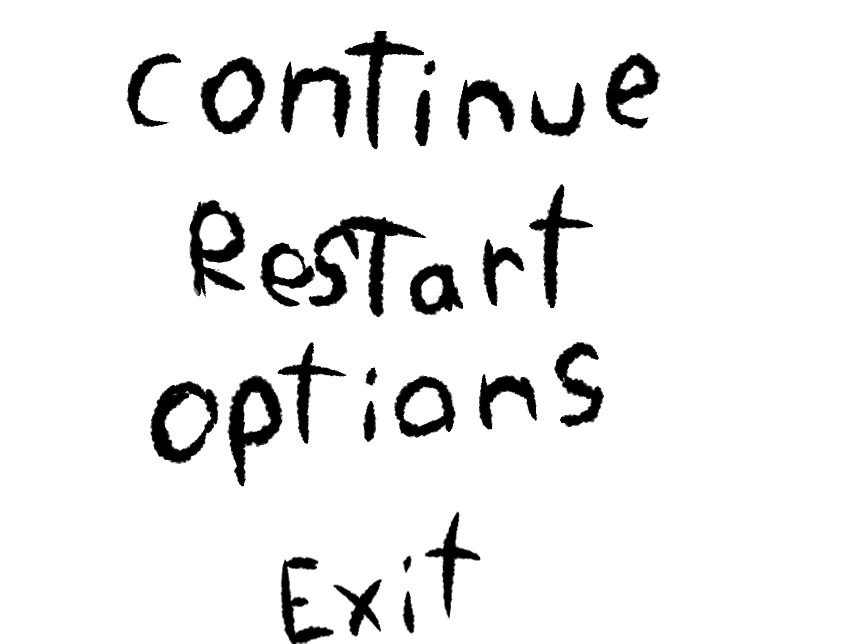 continue
Restart
options
Exit